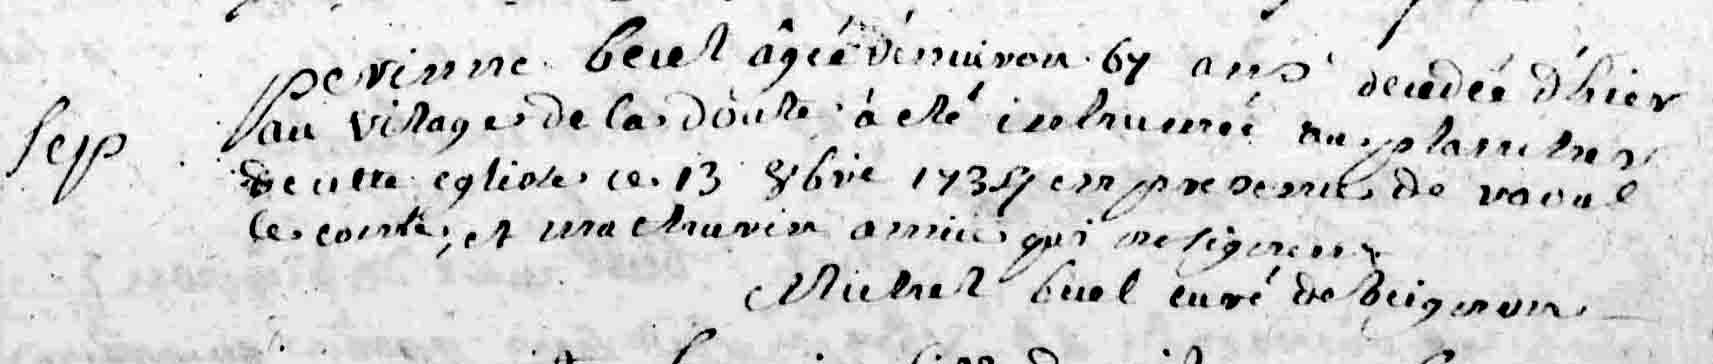 perinne beul âgée d'environ 67 ans decedée d'hier
Sep au village de la doute a eté inhumée au planitre
de cette eglise ce 13 bre 173 en presence de raoul
le comte, et mathurin amice qui ne signent
Michel buel curé de beignon